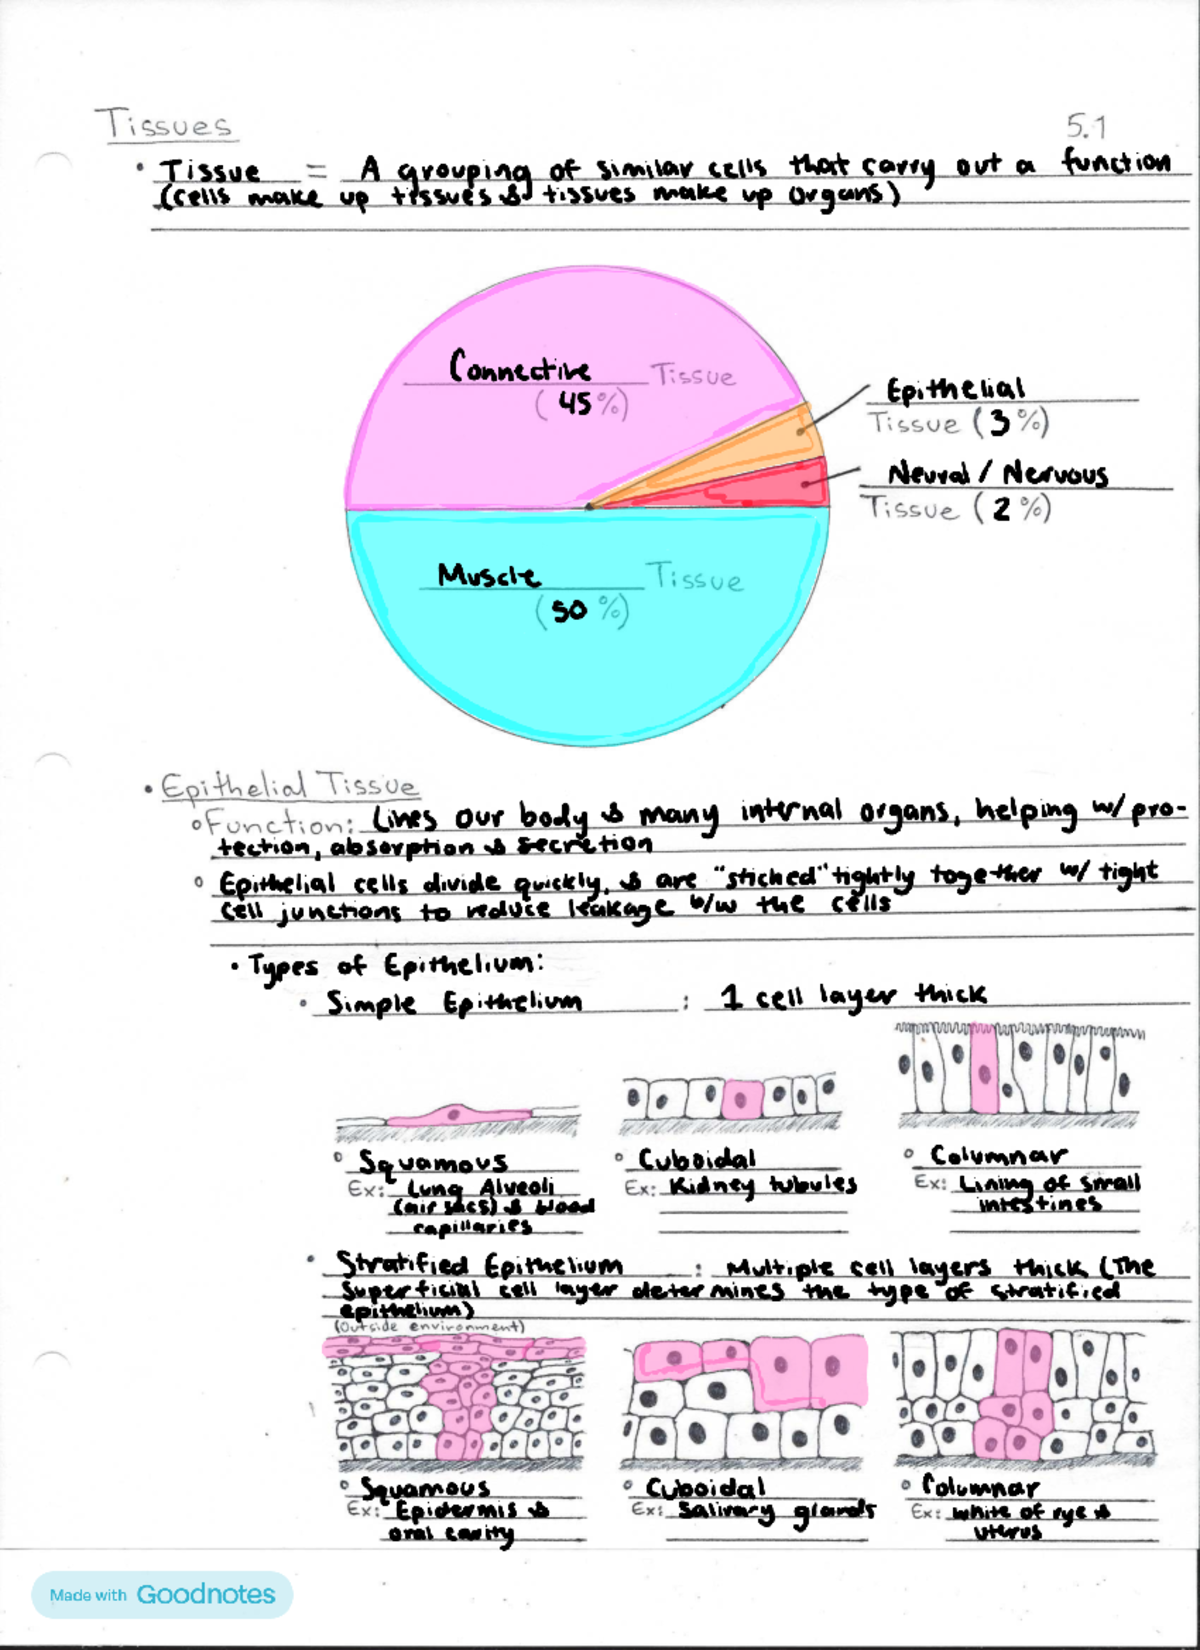 Tissues 5.1
• Tissue = A grouping of similar cells that carry out a function
(cells make up tissues & tissues make up organs)
Connective Tissue
(45%)
Epithelial
Tissue (3%)
Neural / Nervous
Tissue (2%)
Muscle Tissue
(50%)
• Epithelial Tissue
Function: Lines our body & many internal organs, helping w/ pro-
tection, absorption & secretion
Epithelial cells divide quickly, & are "stiched" tightly together w/ tight
cell junctions to reduce leakage b/w the cells
• Types of Epithelium:
• Simple Epithelium : 1 cell layer thick
Squamous
Ex: Lung Alveoli
(air sacs) & blood
capillaries
Cuboidal
Ex: Kidney tubules
Columnar
Ex: Lining of small
intestines
• Stratified Epithelium : Multiple cell layers thick (The
superficial cell layer determines the type of stratified
epithelium)
(Outside environment)
Squamous
Ex: Epidermis &
oral cavity
Cuboidal
Ex: Salivary glands
Columnar
Ex: white of eye &
uterus
Made with Goodnotes